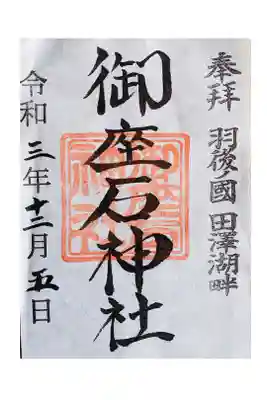 奉拝 羽後國 田澤湖畔
御座石神社
令和三年十二月五日